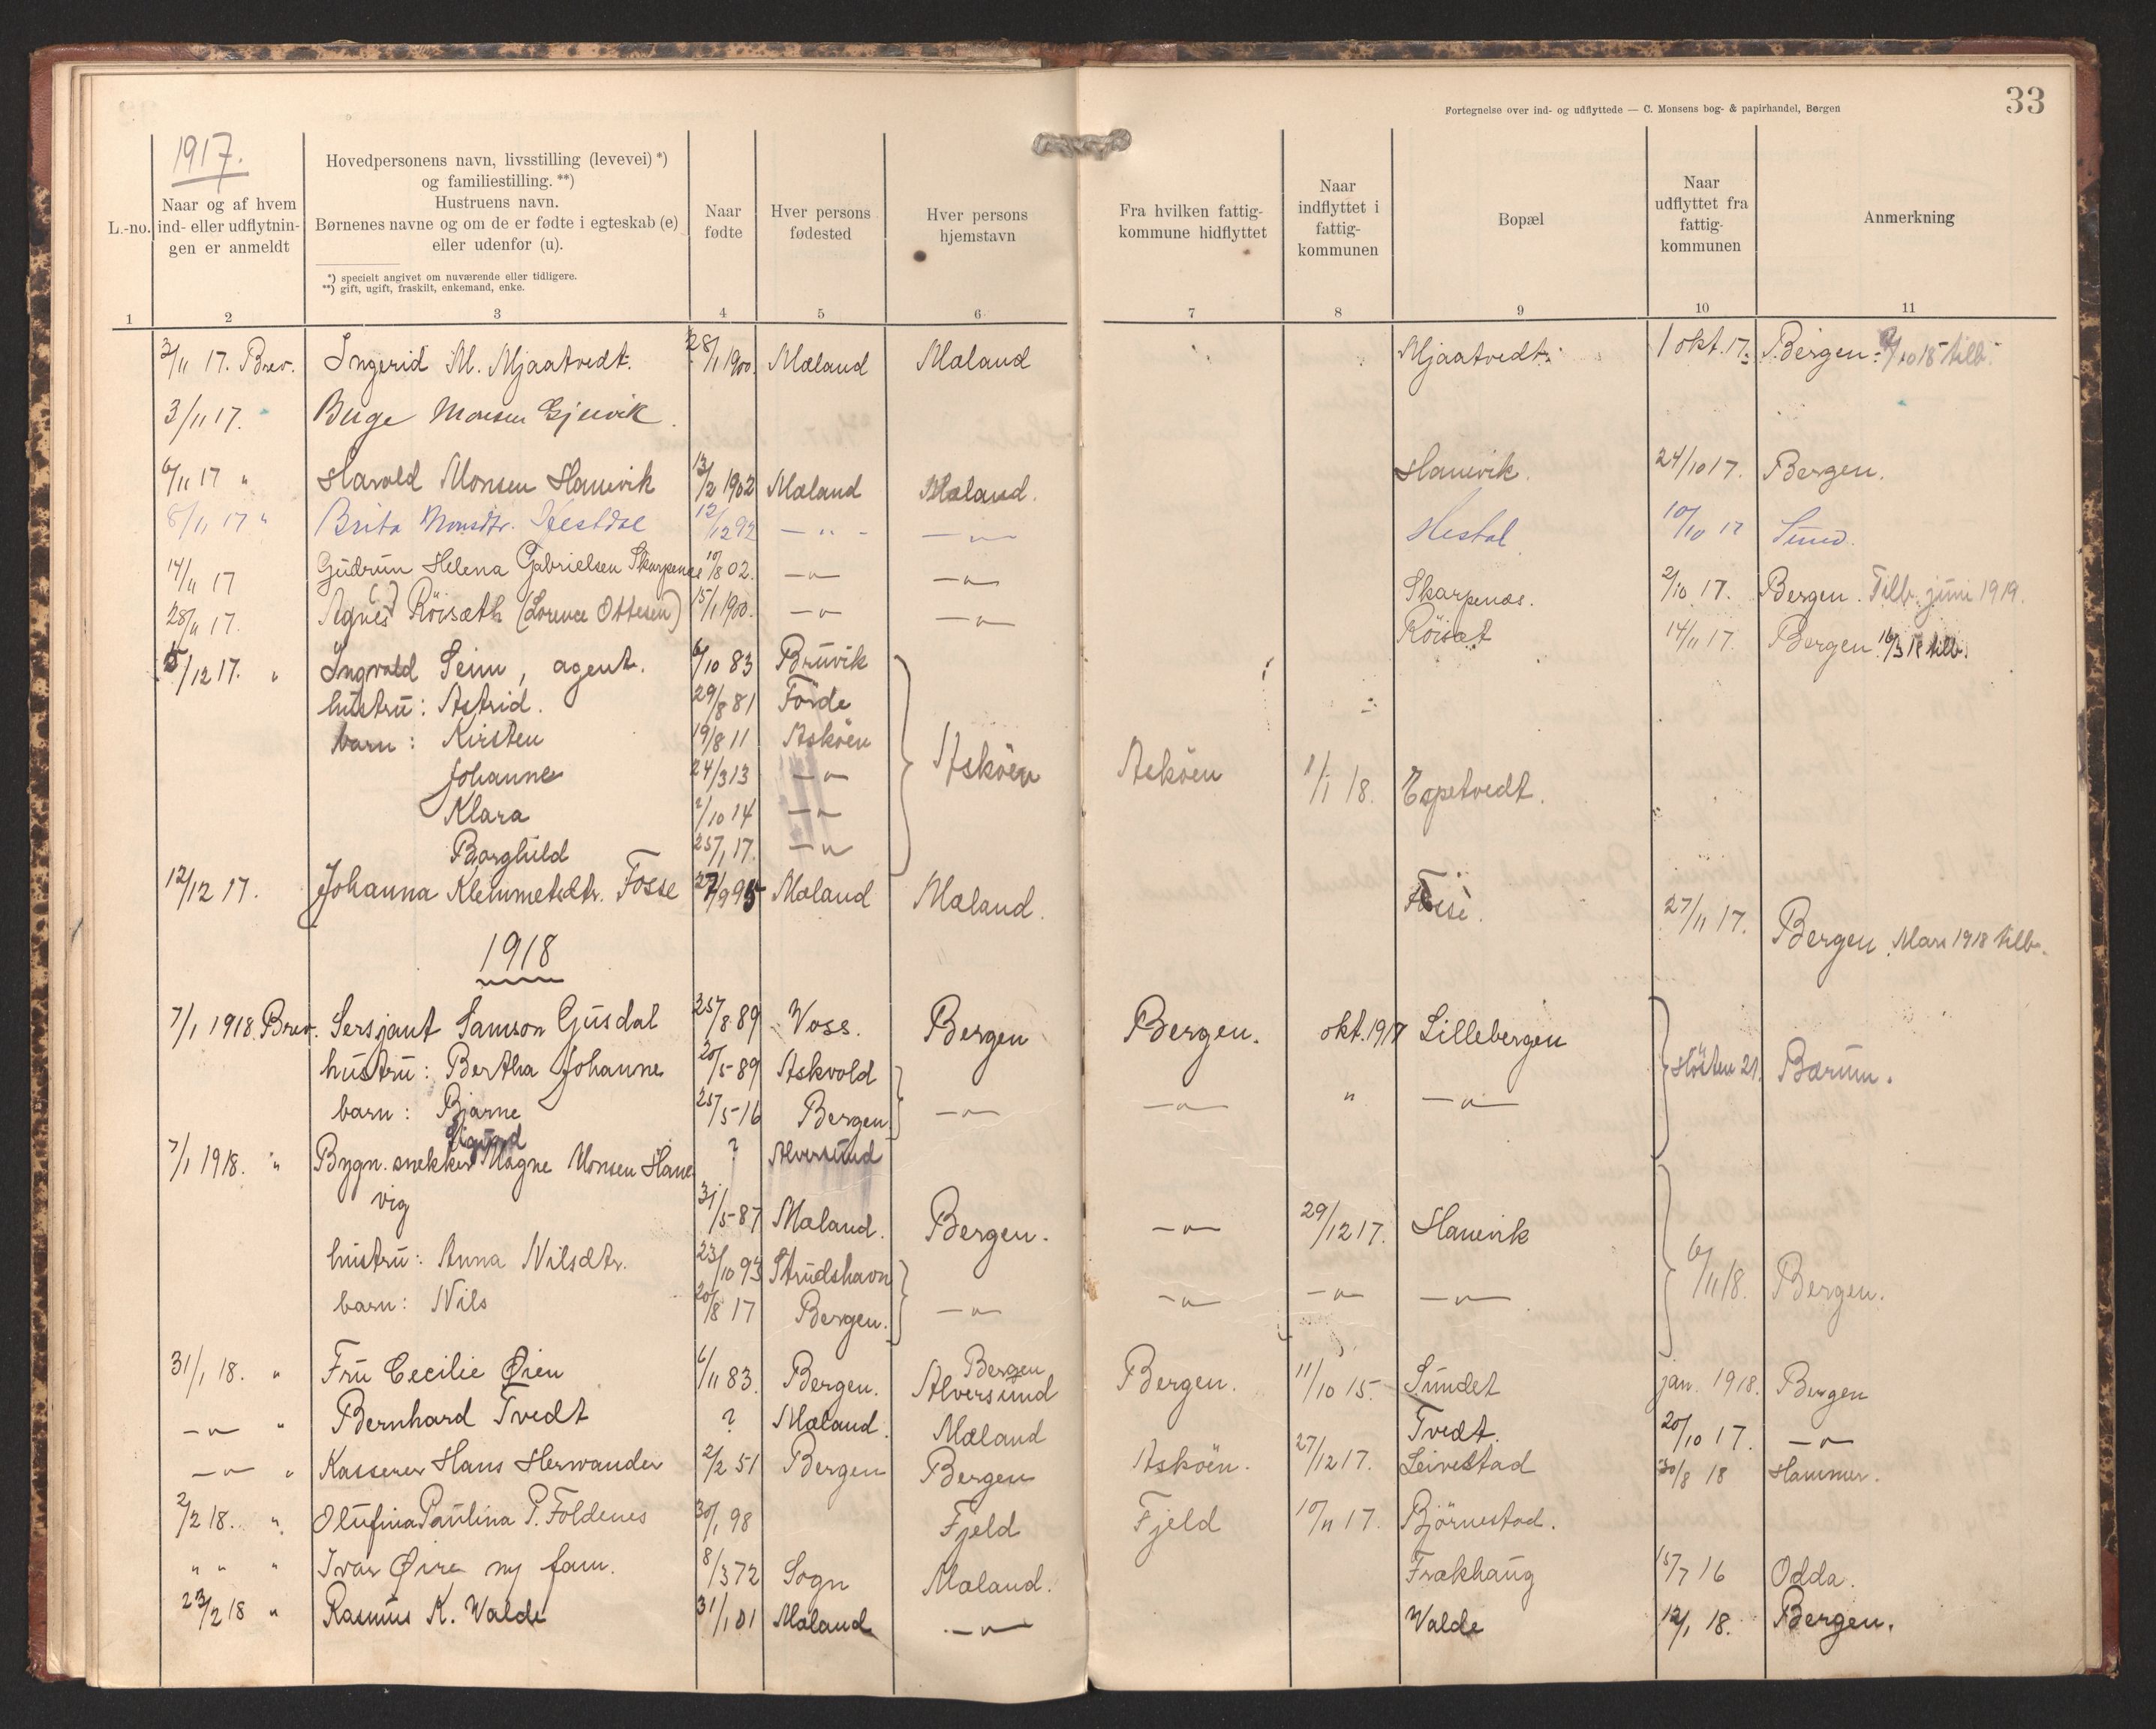 33
Fortegnelse over ind- og udflyttede — C. Monsens bog- & papirhandel, Bergen
1917.
L.-no.
Naar og af hvem
ind- eller udflytnin-
gen er anmeldt
Hovedpersonens navn, livsstilling (levevei) *)
og familiestilling. **)
Hustruens navn.
Børnenes navne og om de er fødte i egteskab (e)
eller udenfor (u).
*) specielt angivet om nuværende eller tidligere.
**) gift, ugift, fraskilt, enkemand, enke.
Naar
fødte
Hver persons
fødested
Hver persons
hjemstavn
Fra hvilken fattig-
kommune hidflyttet
Naar
indflyttet i
fattig-
kommunen
Bopæl
Naar
udflyttet fra
fattig-
kommunen
Anmerkning
1 2 3 4 5 6 7 8 9 10 11
2/11 17. Brev. Ingerid M. Mjaatvedt. 28/1 1900. Mæland Mæland Mjaatvedt. 1 okt. 17. Bergen. /10 18 tilb.
3/11 17. " Monsen Gjervik.
6/11 17 " Harald Monsen Hanevik 13/2 1902 Mæland Mæland. Hanevik. 24/10 17. Bergen.
8/11 17 " Brita Monsdtr. Hestdal 12/12 92 — " — — " — Hestal 10/10 17 Sund.
14/11 17 Gudrun Helena Gabrielsen Skarpenes 10/8 02. — " — — " — Skarpenæs. 2/10 17. Bergen. Tilb. juni 1919.
28/11 17. Agnes Röisæth (Lorence Ottesen) 15/1 1900. — " — — " — Röisæt 14/11 17. Bergen. 16/3 18 tilb.
5/12 17. " Ingvald Seim, agent. 6/10 83 Bruvik
hustru: Astrid. 29/8 81 Förde
barn: Kirsten 19/8 11 Asköen
Johanne 24/3 13 — " — Asköen Asköen 1/1 18. Espetvedt.
Klara 2/10 14 — " —
Borghild 25/1 17. — " —
12/12 17. Johanna Klemmetsdtr. Fosse 27/9 95 Mæland Mæland. Fosse. 27/11 17. Bergen. Mars 1918 tilb.
1918
7/1 1918. Brev. Sersjant Samson Gjusdal 25/8 89 Voss. Bergen Bergen. okt. 1917 Lillebergen
hustru: Bertha Johanne 20/5 89 Askvold Hösten 21. Bærum.
barn: Bjarne 25/5 16 Bergen — " — — " — " — " —
Sigurd ? Alversund
7/1 1918. " Bygn. snekker Magne Monsen Hane
vig 31/5 87 Mæland. Bergen. — " — 29/12 17. Hanevik
hustru: Anna Nilsdtr. 23/10 93 Strudshavn 6/11 18. Bergen.
barn: Nils 20/8 17 Bergen. — " — — " — — " — — " —
31/1 18. " Fru Cecilie Øien 6/11 83. Bergen. Bergen Alversund Bergen. 11/10 15. Sundet jan. 1918. Bergen
— " — " Bernhard Tvedt ? Mæland. Mæland Tvedt. 20/10 17. — " —
— " — " Kasserer Hans Herwander 2/2 51 Bergen Bergen Asköen. 27/12 17. Leivestad 30/8 18 Hammer.
2/2 18. " Olufina Paulina P. Foldenes 30/1 98 Fjeld Fjeld 10/11 17. Björnestad.
" " " Ivar Øire m/ fam. 8/3 72 Sogn Mæland. Frækhaug 15/7 16 Odda.
23/2 18 " Rasmus K. Walde 31/1 01 Mæland — " — Walde 12/1 18. Bergen.